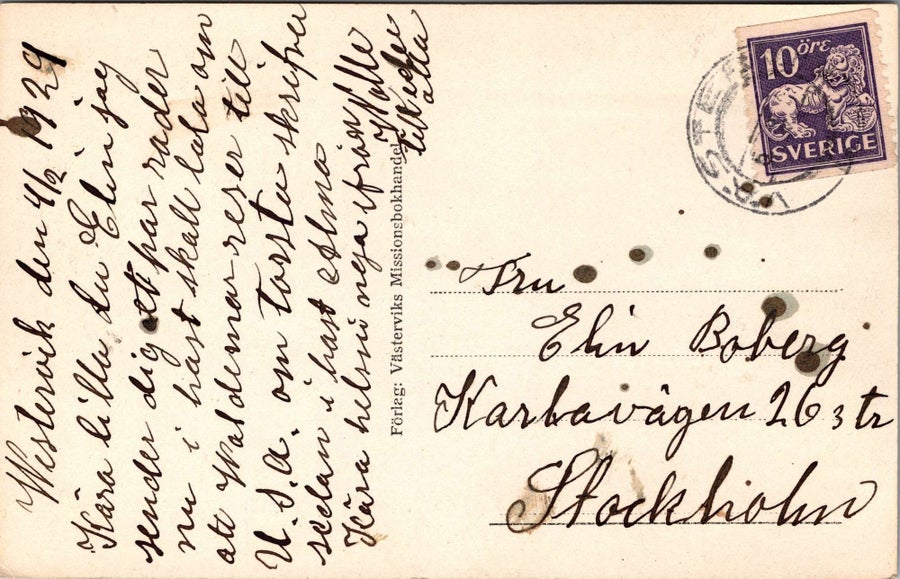 Westervik den 4/2 1929
Kära lilla du Elin jag
sender dig ett par rader
nu i hast skall tala om
att Valdemar reser till
U.S.A. om torsta skrifva
sedan i hast Alma
Kära helsninga från Kalle
till eder
alla
Förlag: Västerviks Missionsbokhandel
10 öre
SVERIGE
Fru
Elin Boberg
Karlavägen 26 3 tr
Stockholm